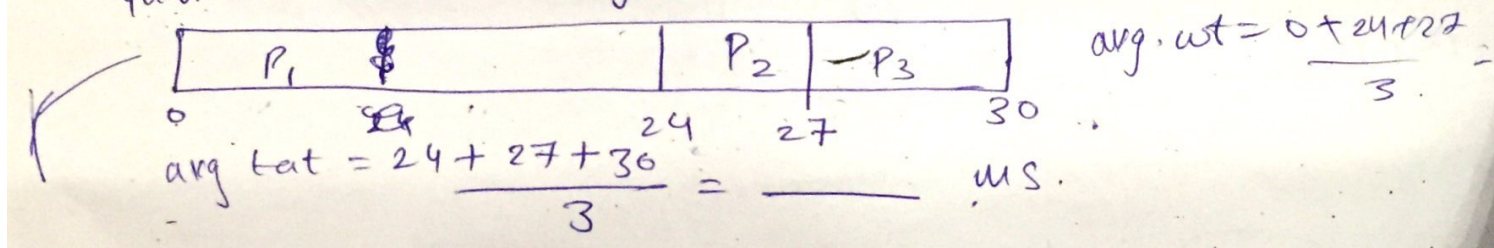 P1 P2 P3
0 24 27 30
avg. wt = 0 + 24 + 27 / 3 =
avg tat = 24 + 27 + 30 / 3 = ____ ms.